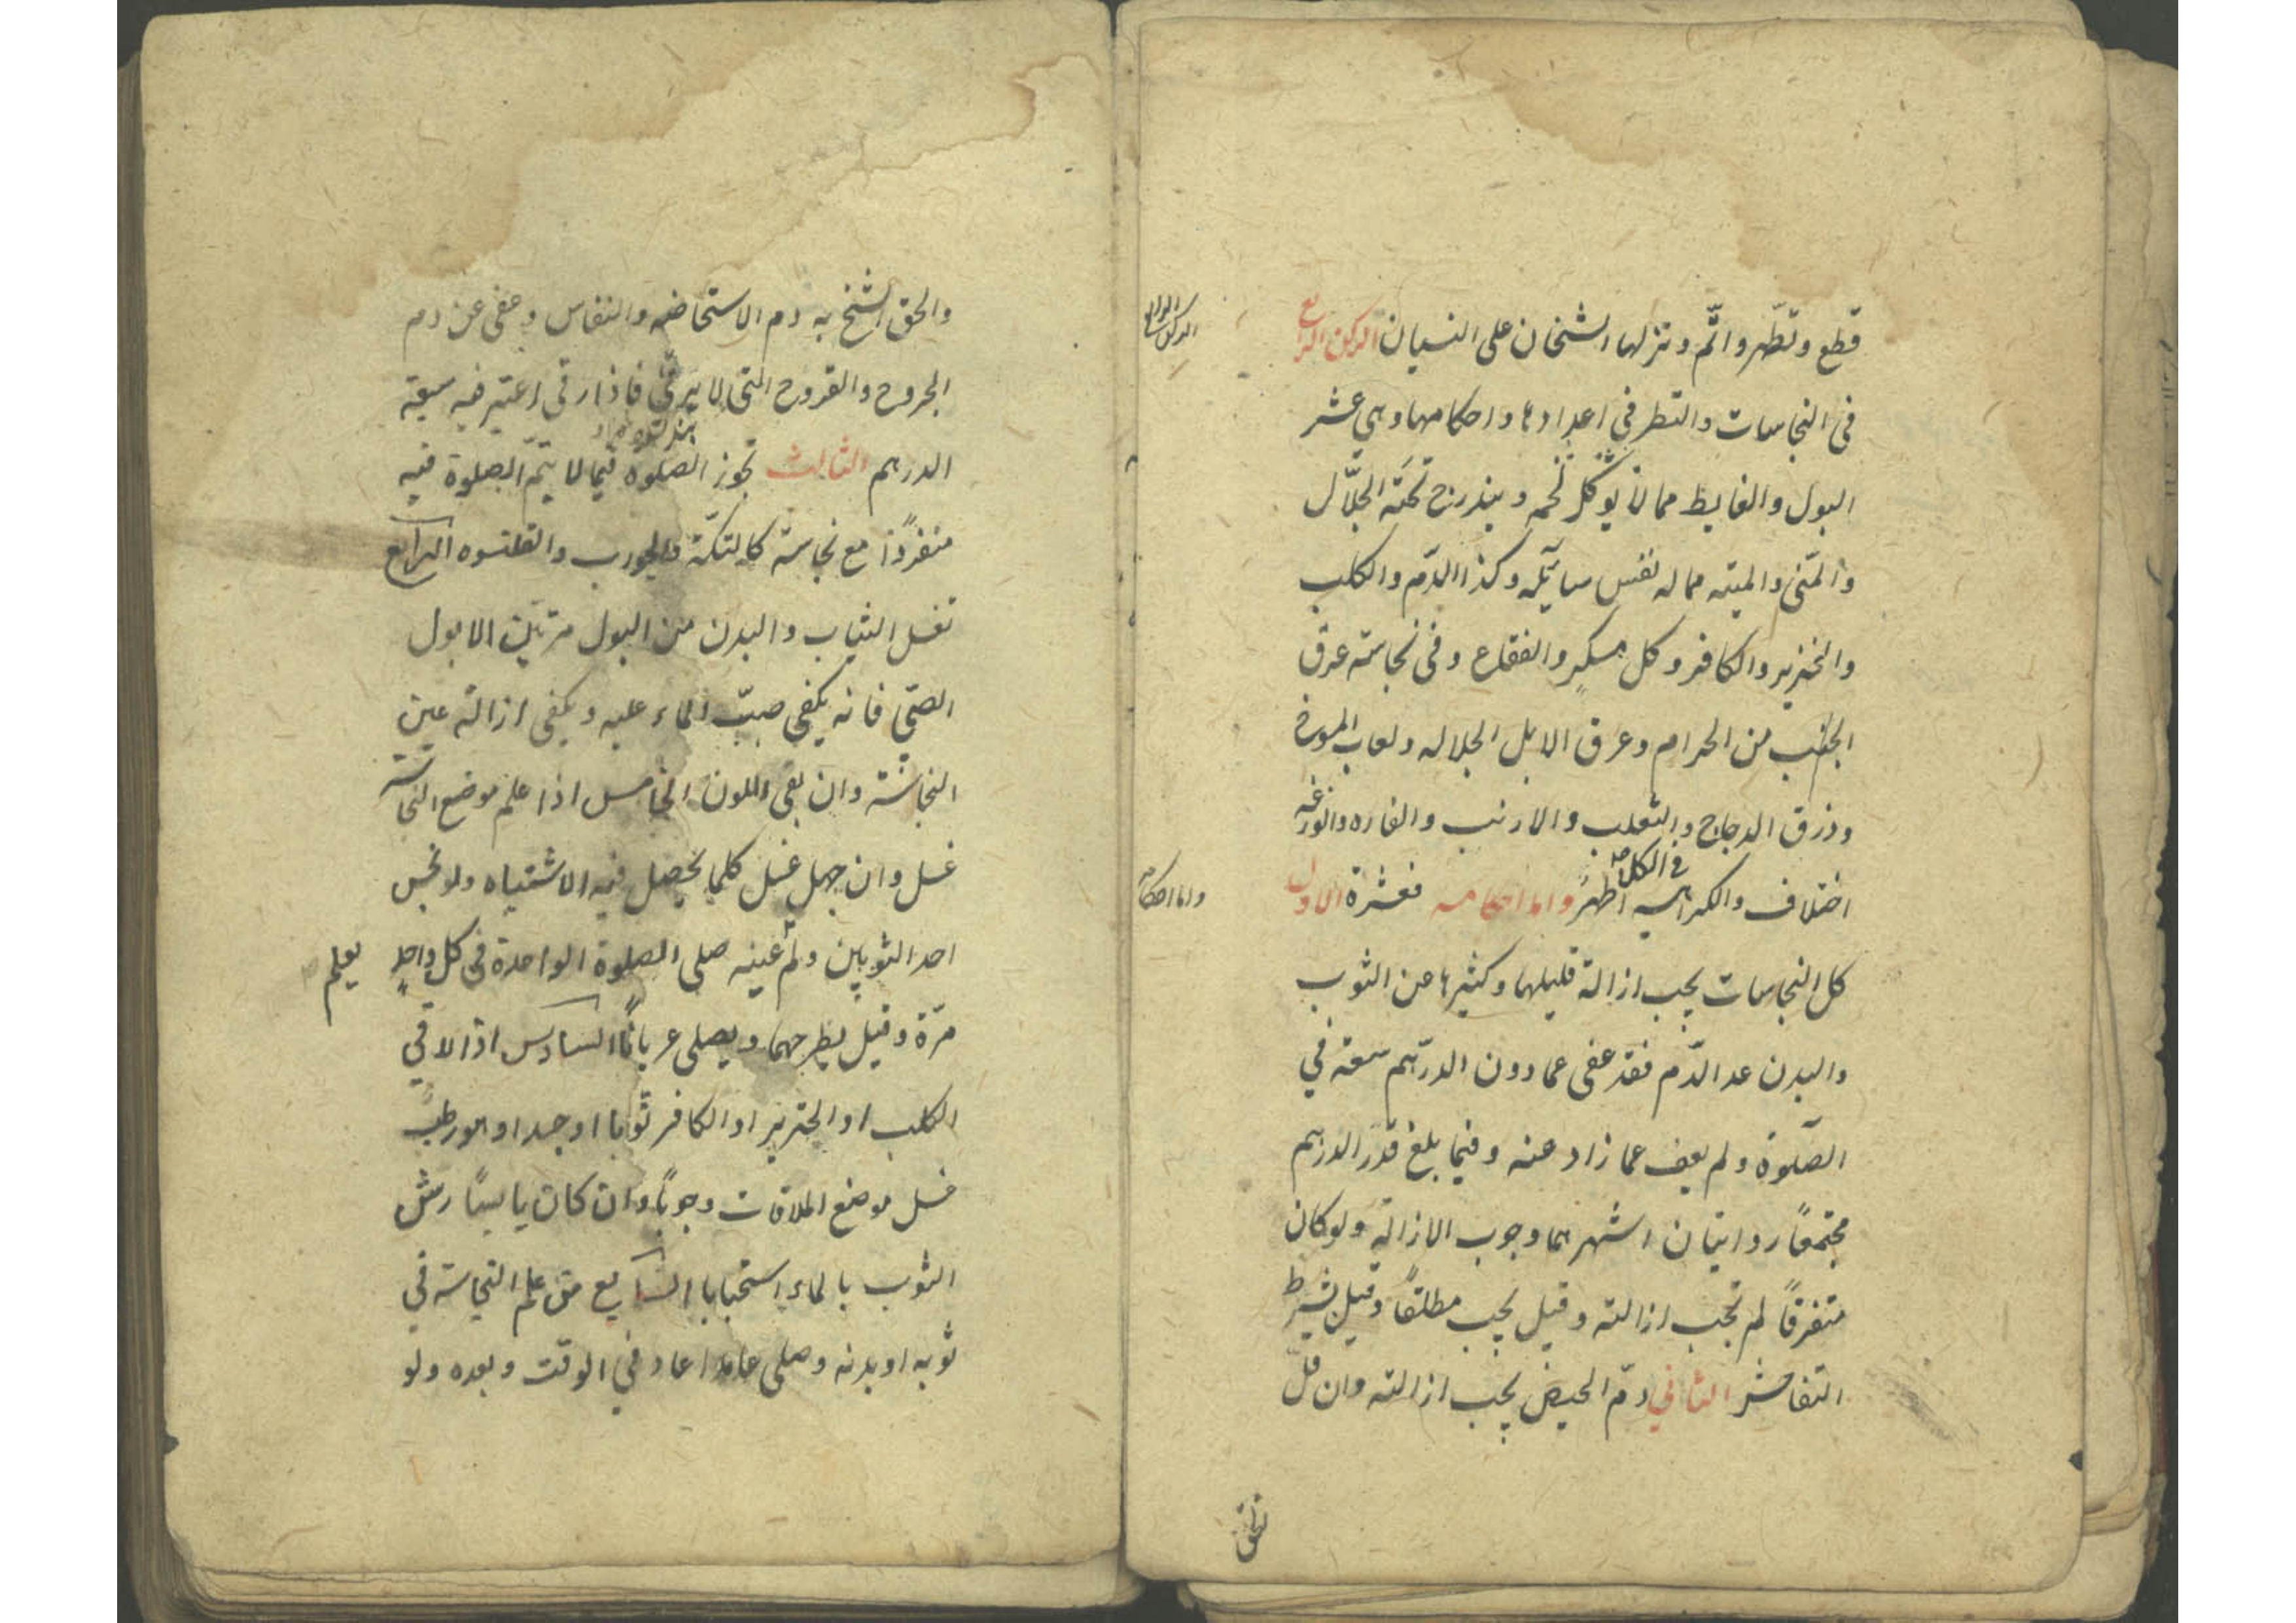 قطع وتطهر واتم ونزلها الشيخان على النسيان الركن الرابع
الركن الرابع
فى النجاسات والنظر في اعدادها واحكامها وهي عشر
البول والغايط مما لا يوكل لحمه ويندرج تحته الجلّال
والمنى والميته مما له نفس سايله وكذا الدّم والكلب
والخنزير والكافر وكل مسكر والفقاع وفى نجاسة عرق
الجنب من الحرام وعرق الابل الجلاله ولعاب المسوخ
وذرق الدجاج والثعلب والارنب والفاره والوزغه
فى الكل
اختلاف والكراهيه اظهر واما احكامه فعشرة الاول
واما احكامه
كل النجاسات يجب ازالة قليلها وكثيرها عن الثوب
والبدن عد الدّم فقد عفى عما دون الدرهم سعة في
الصّلوة ولم يعف عما زاد عنه وفيما بلغ قدر الدرهم
مجتمعًا روايتان اشهرهما وجوب الازالة ولو كان
متفرقًا لم تجب ازالته وقيل يجب مطلقًا وقيل بشرط
التفاحش الثاني دم الحيض يجب ازالته وان قلّ
والحق الشيخ به دم الاستحاضه والنفاس وعفى عن دم
الجروح والقروح التى لا يرقى فاذا رقى اعتبر فيه سعة
الدرهم الثالث تجوز الصلوه فيما لا يتم الصلوة فيه
منفردًا مع نجاسة كالتكّة والجورب والقلنسوه الرابع
تغسل الثياب والبدن من البول مرتين الا بول
الصبّي فانه يكفي صبّ الماء عليه ويكفى ازالة عين
النجاسة وان بقى اللون الخامس اذا علم موضع النجاسة
غسل وان جهل غسل كلما يحصل فيه الاشتباه ولو نجس
احد الثوبين ولم عينه صلى الصلوة الواحدة فى كل واحدٍ
يعلم
مرّة وقيل يطرحهما ويصلى عريانًا السادس اذا لاقى
الكلب او الخنزير او الكافر ثوبا او جسدا وهو رطب
غسل موضع الملاقات وجوبًا وان كان يابسًا رش
الثوب بالماء استحبابا السابع من علم النجاسة في
ثوبه او بدنه وصلى عامدا اعاد في الوقت وبعده ولو